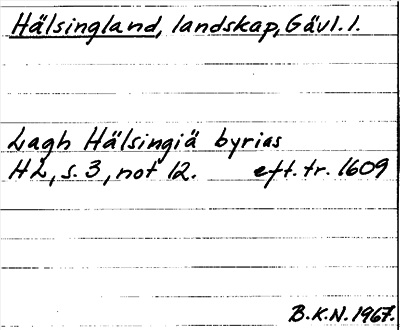 Hälsingland, landskap, Gävl. l.
Lagh Hälsingiä byrias
HL, s. 3, not 12. eft. tr. 1609
B.K.N. 1967.